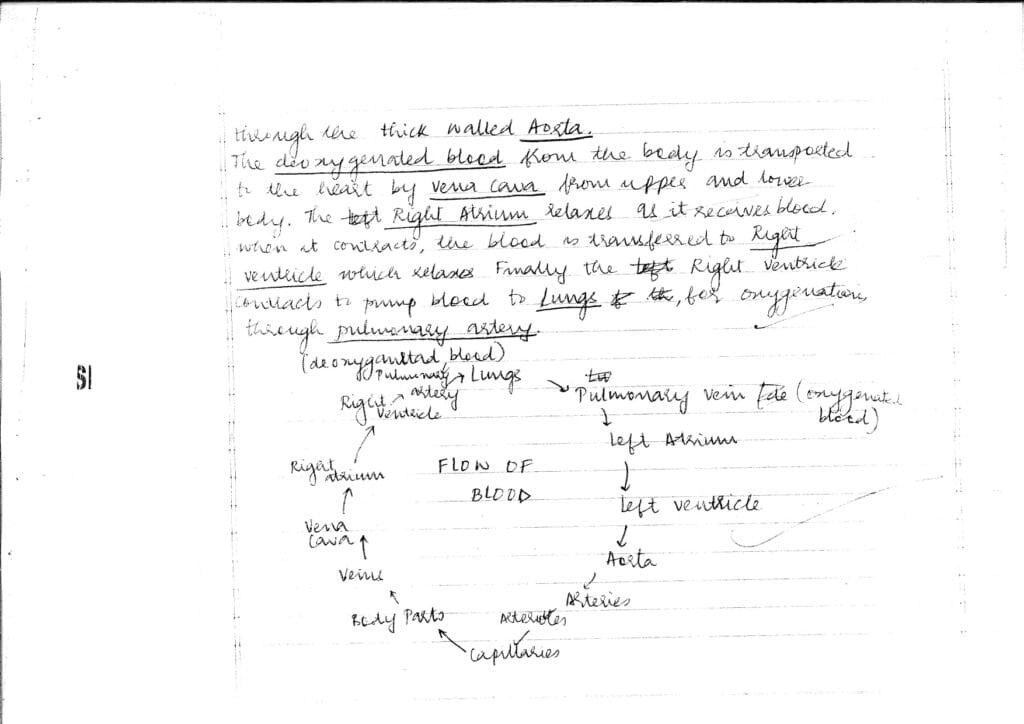 through the thick walled Aorta.
The deoxygenated blood from the body is transported
to the heart by vena cava from upper and lower
body. The left Right Atrium relaxes as it receives blood.
when it contracts, the blood is transferred to Right
ventricle which relaxes Finally the left Right ventricle
contracts to pump blood to Lungs , for oxygenation,
through pulmonary artery.
(deoxygenated blood)
Pulmonary artery
Lungs
Pulmonary vein (oxygenated
blood)
Right
ventricle
left Atrium
Right
atrium
FLOW OF
BLOOD
left ventricle
Vena
Cava
Aorta
Veins
Arteries
Body Parts
Arterioles
Capillaries
SI